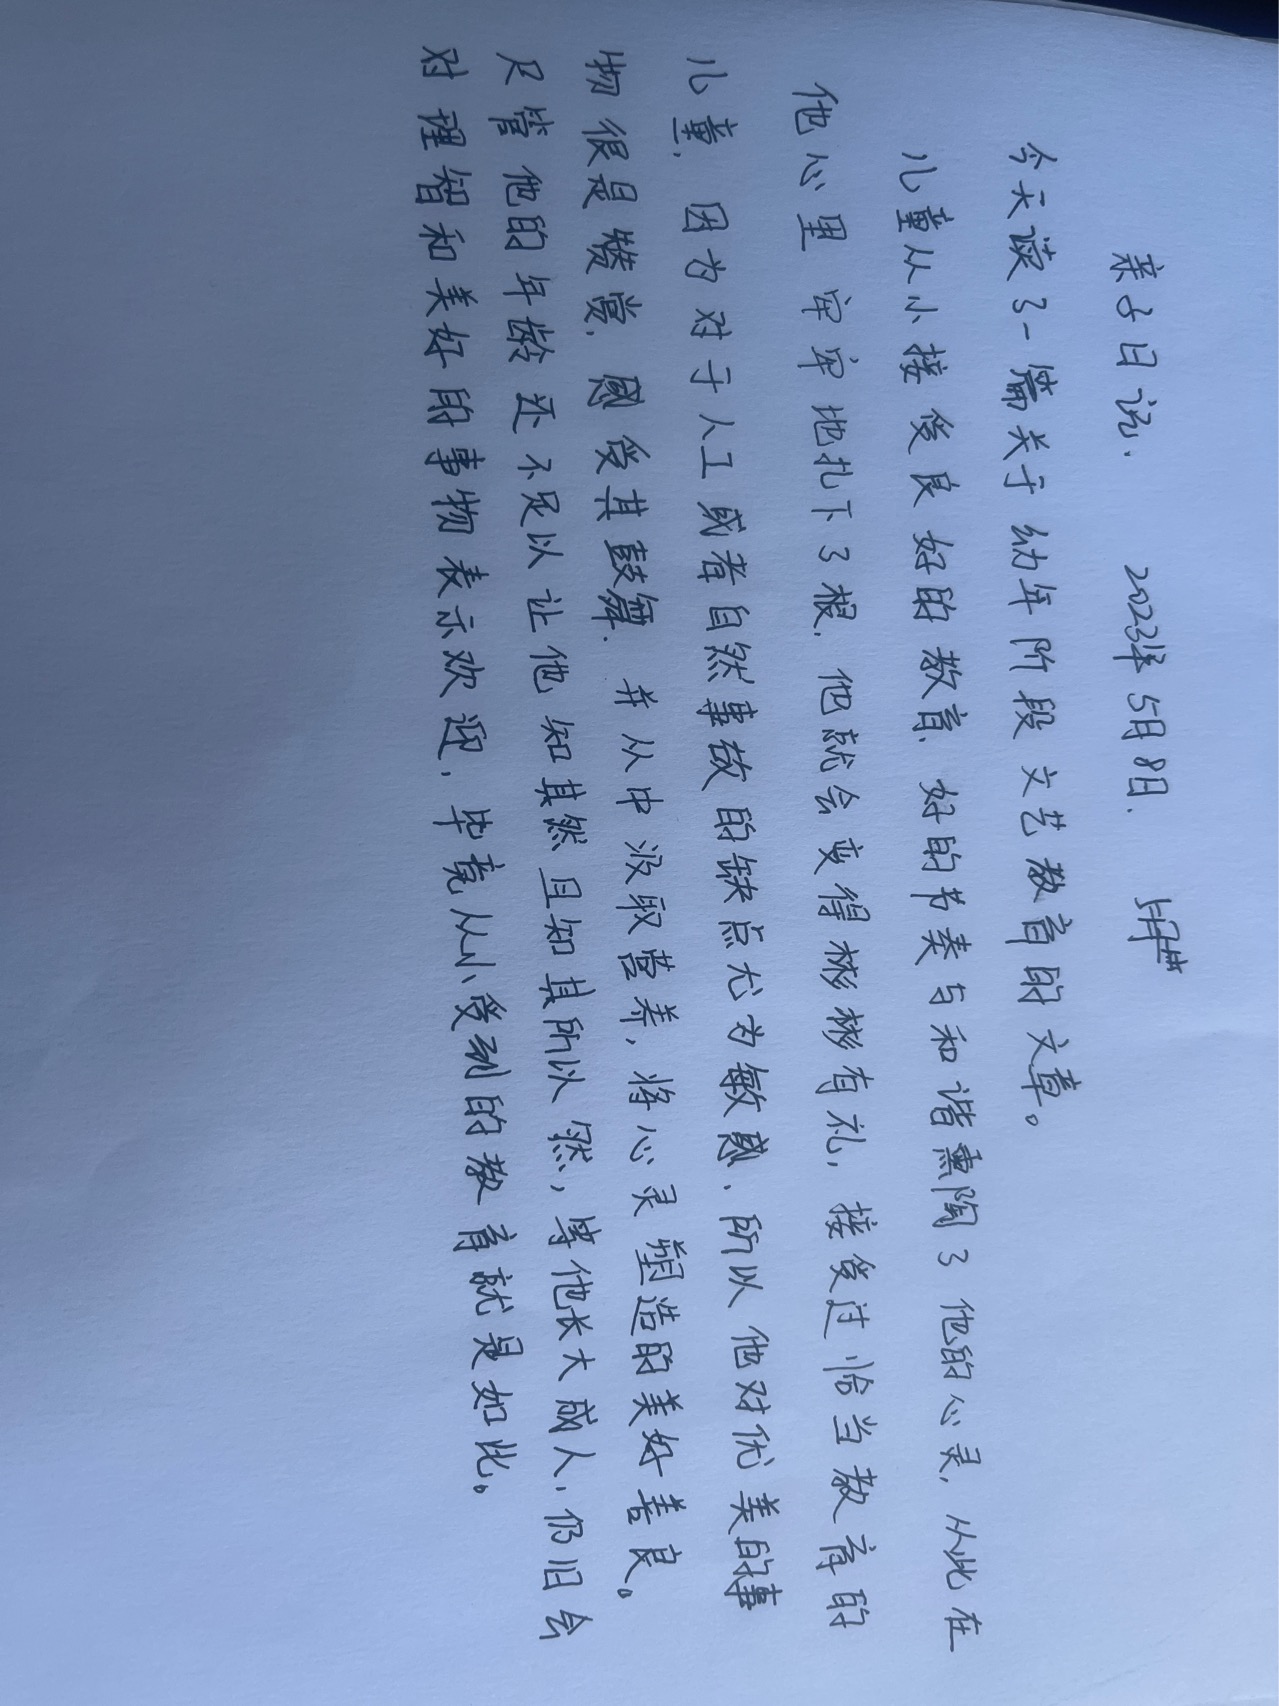 亲子日记. 2023年5月8日.
今天读了一篇关于幼年阶段文艺教育的文章。
儿童从小接受良好的教育、好的节奏与和谐熏陶了他的心灵,从此在
他心里牢牢地扎下了根.他就会变得彬彬有礼,接受过恰当教育的
儿童,因为对于人工或者自然事故的缺点尤为敏感.所以他对优美的事
物很是赞赏,感受其鼓舞.并从中汲取营养,将心灵塑造的美好善良。
尽管他的年龄还不足以让他知其然且知其所以然,等他长大成人,仍旧会
对理智和美好的事物表示欢迎,毕竟从小受到的教育就是如此。